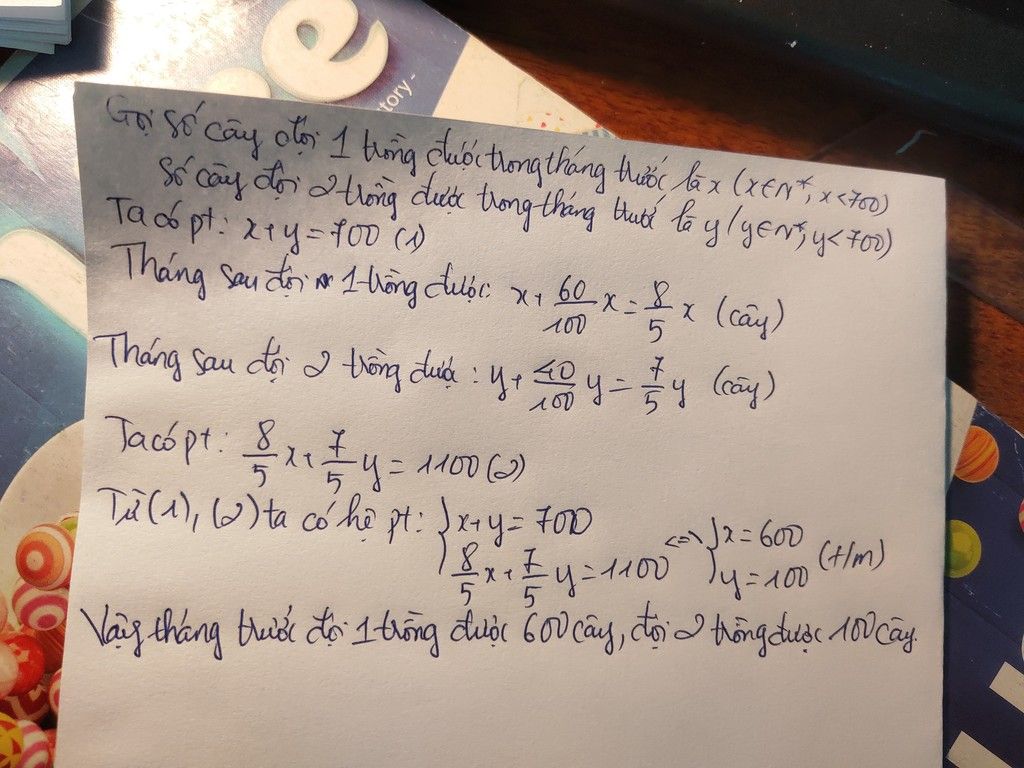 e
tory -
Gọi số cây đội 1 trồng được trong tháng trước là x (x∈N*, x<700)
Số cây đội 2 trồng được trong tháng trước là y (y∈N*, y<700)
Ta có pt: x+y=700 (1)
Tháng sau đội 1 trồng được: x+60/100x=8/5x (cây)
Tháng sau đội 2 trồng được: y+40/100y=7/5y (cây)
Ta có pt: 8/5x+7/5y=1100(2)
Từ (1), (2) ta có hệ pt: {x+y=700
8/5x+7/5y=1100 <=> {x=600
y=100 (t/m)
Vậy tháng trước đội 1 trồng được 600 cây, đội 2 trồng được 100 cây.